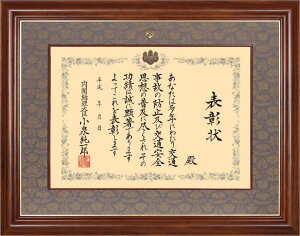 表彰状
殿
あなたは多年にわたり交通
事故の防止及び交通安全
思想の普及に尽くされその
功績は誠に顕著であります
よってこれを表彰します
平成　年　月　日
内閣総理大臣小泉純一郎